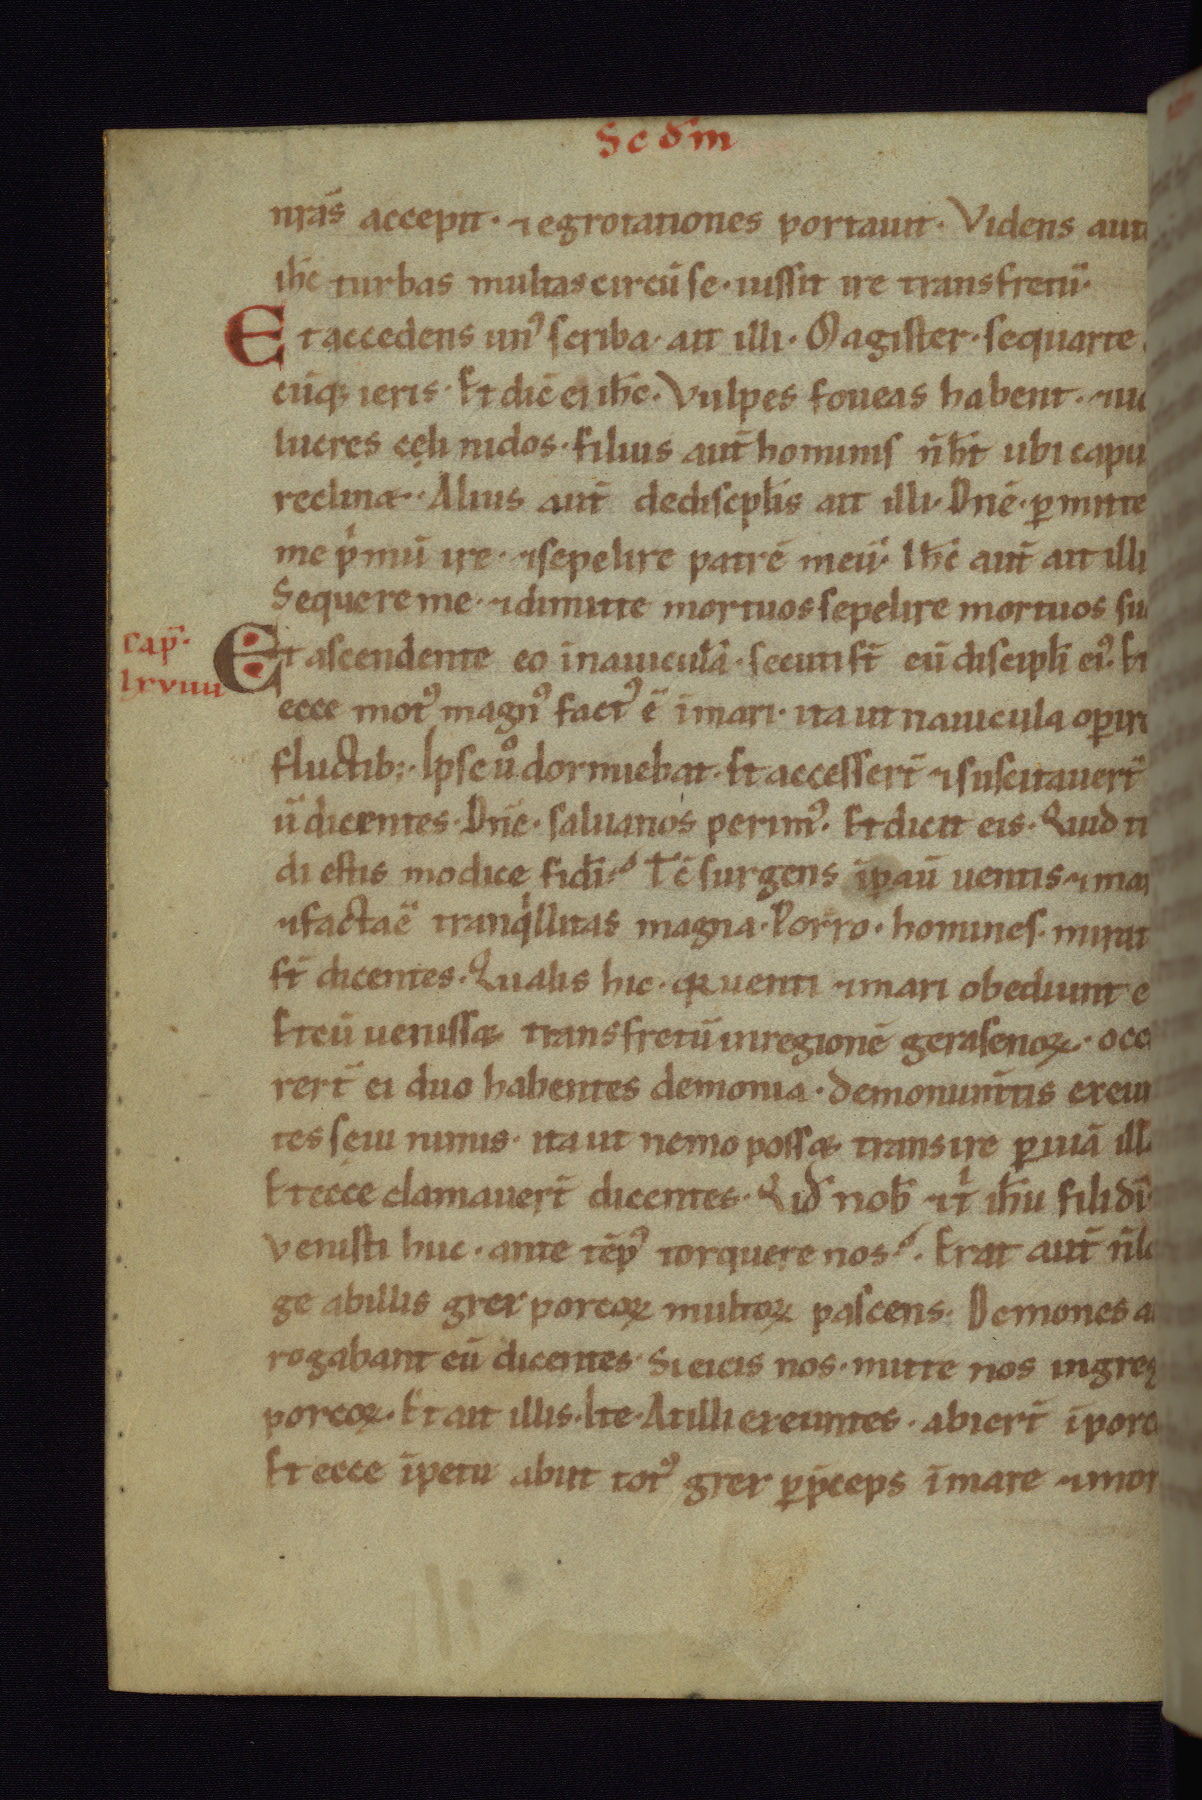 Scdm̄
nr̄as accepit · ⁊ egrotationes portauit · Videns aut
ih̄c turbas multas circū se · iussit ire trans fretū ·
Et accedens un᾿ scriba · ait illi · Magister · sequar te
cūq; ieris · Et dic̄ ei ih̄c · Vulpes foueas habent · ⁊ uo
lucres cęli nidos · filius aut̄ hominis n̄ h̄t ubi capu
reclinet · Alius aut̄ de discipl̄is ait illi · Dn̄e · ꝑmitte
me p̄mū ire · ⁊ sepelire patrē meū · Ih̄c aut̄ ait illi
Sequere me · ⁊ dimitte mortuos sepelire mortuos su
cap̄ · lxviiii
Et ascendente eo ī nauiculā · secuti s̄t eū discipl̄i ei᾿ · Et
ecce mot᾿ magn᾿ fact᾿ ē ī mari · ita ut nauicula oꝑire
fluctib; · Ipse ů dormiebat · Et accesser̄t ⁊ suscitauer̄t
ū dicentes · Dn̄e · salua nos perim᾿ · Et dicit eis · Quid ti
di estis modice fidi · Tc̄ surgens īpau̅ uentis ⁊ mar
⁊ facta ē tranq̇llitas magna · Porro · homines · mirat
s̄t dicentes · Qualis hic · qꝛ uenti ⁊ mari obediunt e
Et cū uenisset trans fretū in regionē gerasenoꝝ · occ
rer̄t ei duo habentes demonia · de monum̄tis exeun
tes seui nimis · ita ut nemo posset transire ꝑ uiā ill
Et ecce clamauer̄t dicentes · Qid nob̄ ⁊ t̄ ih̄u fili dī
venisti huc · ante tēp᾿ torquere nos · Erat aut̄ n̄ lo
ge ab illis grex porcoꝝ multoꝝ pascens · Demones a
rogabant eū dicentes · Si eicis nos · mitte nos in greg
porcoꝝ · Et ait illis · Ite · At illi exeuntes · abier̄t ī porc
Et ecce īpetu abiit tot᾿ grex ꝑp̄ceps ī mare ⁊ mor